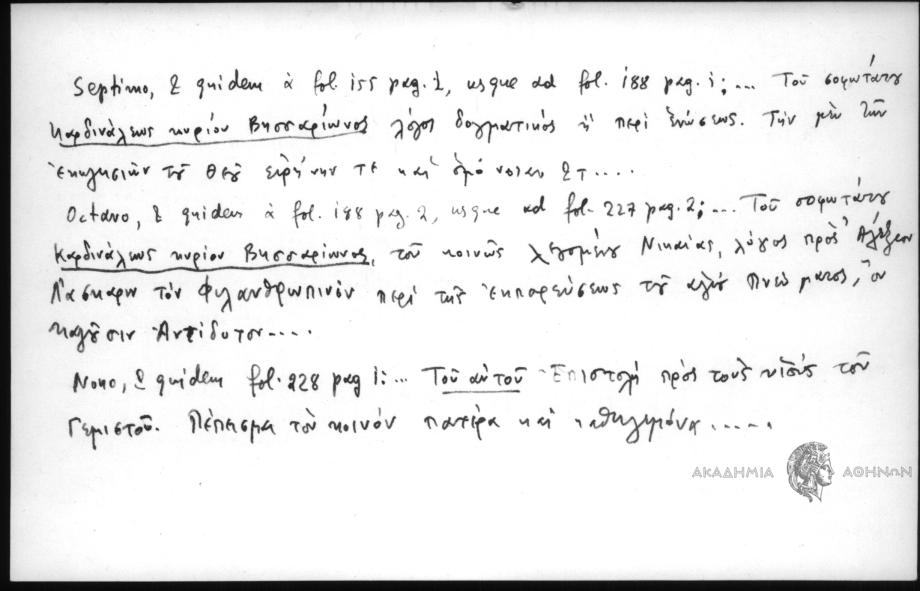 Septimo, & quidem à fol. 155 pag. 2, usque ad fol. 188 pag. 1; ... Τοῦ σοφωτάτου
Καρδινάλεως κυρίου Βησσαρίωνος λόγος δογματικός ἢ περὶ ἑνώσεως. Τὴν μὲν τῶν
ἐκκλησιῶν τοῦ Θεοῦ εἰρήνην τε καὶ ὁμόνοιαν &τ....
Octavo, & quidem à fol. 188 pag. 2, usque ad fol. 227 pag. 2; ... Τοῦ σοφωτάτου
Καρδινάλεως κυρίου Βησσαρίωνος, τοῦ κοινῶς λεγομένου Νικαίας, λόγος πρὸς Ἀλέξιον
Λάσκαριν τὸν Φιλανθρωπινόν περὶ τῆς ἐκπορεύσεως τοῦ ἁγίου Πνεύματος, ὃν
καλοῦσιν Ἀντίδοτον....
Nono, & quidem fol. 228 pag 1: ... Τοῦ αὐτοῦ Ἐπιστολὴ πρὸς τοὺς υἱοὺς τοῦ
Γεμιστοῦ. Πέπυσμαι τὸν κοινόν πατέρα καὶ καθηγεμόνα.....
ΑΚΑΔΗΜΙΑ ΑΘΗΝΩΝ